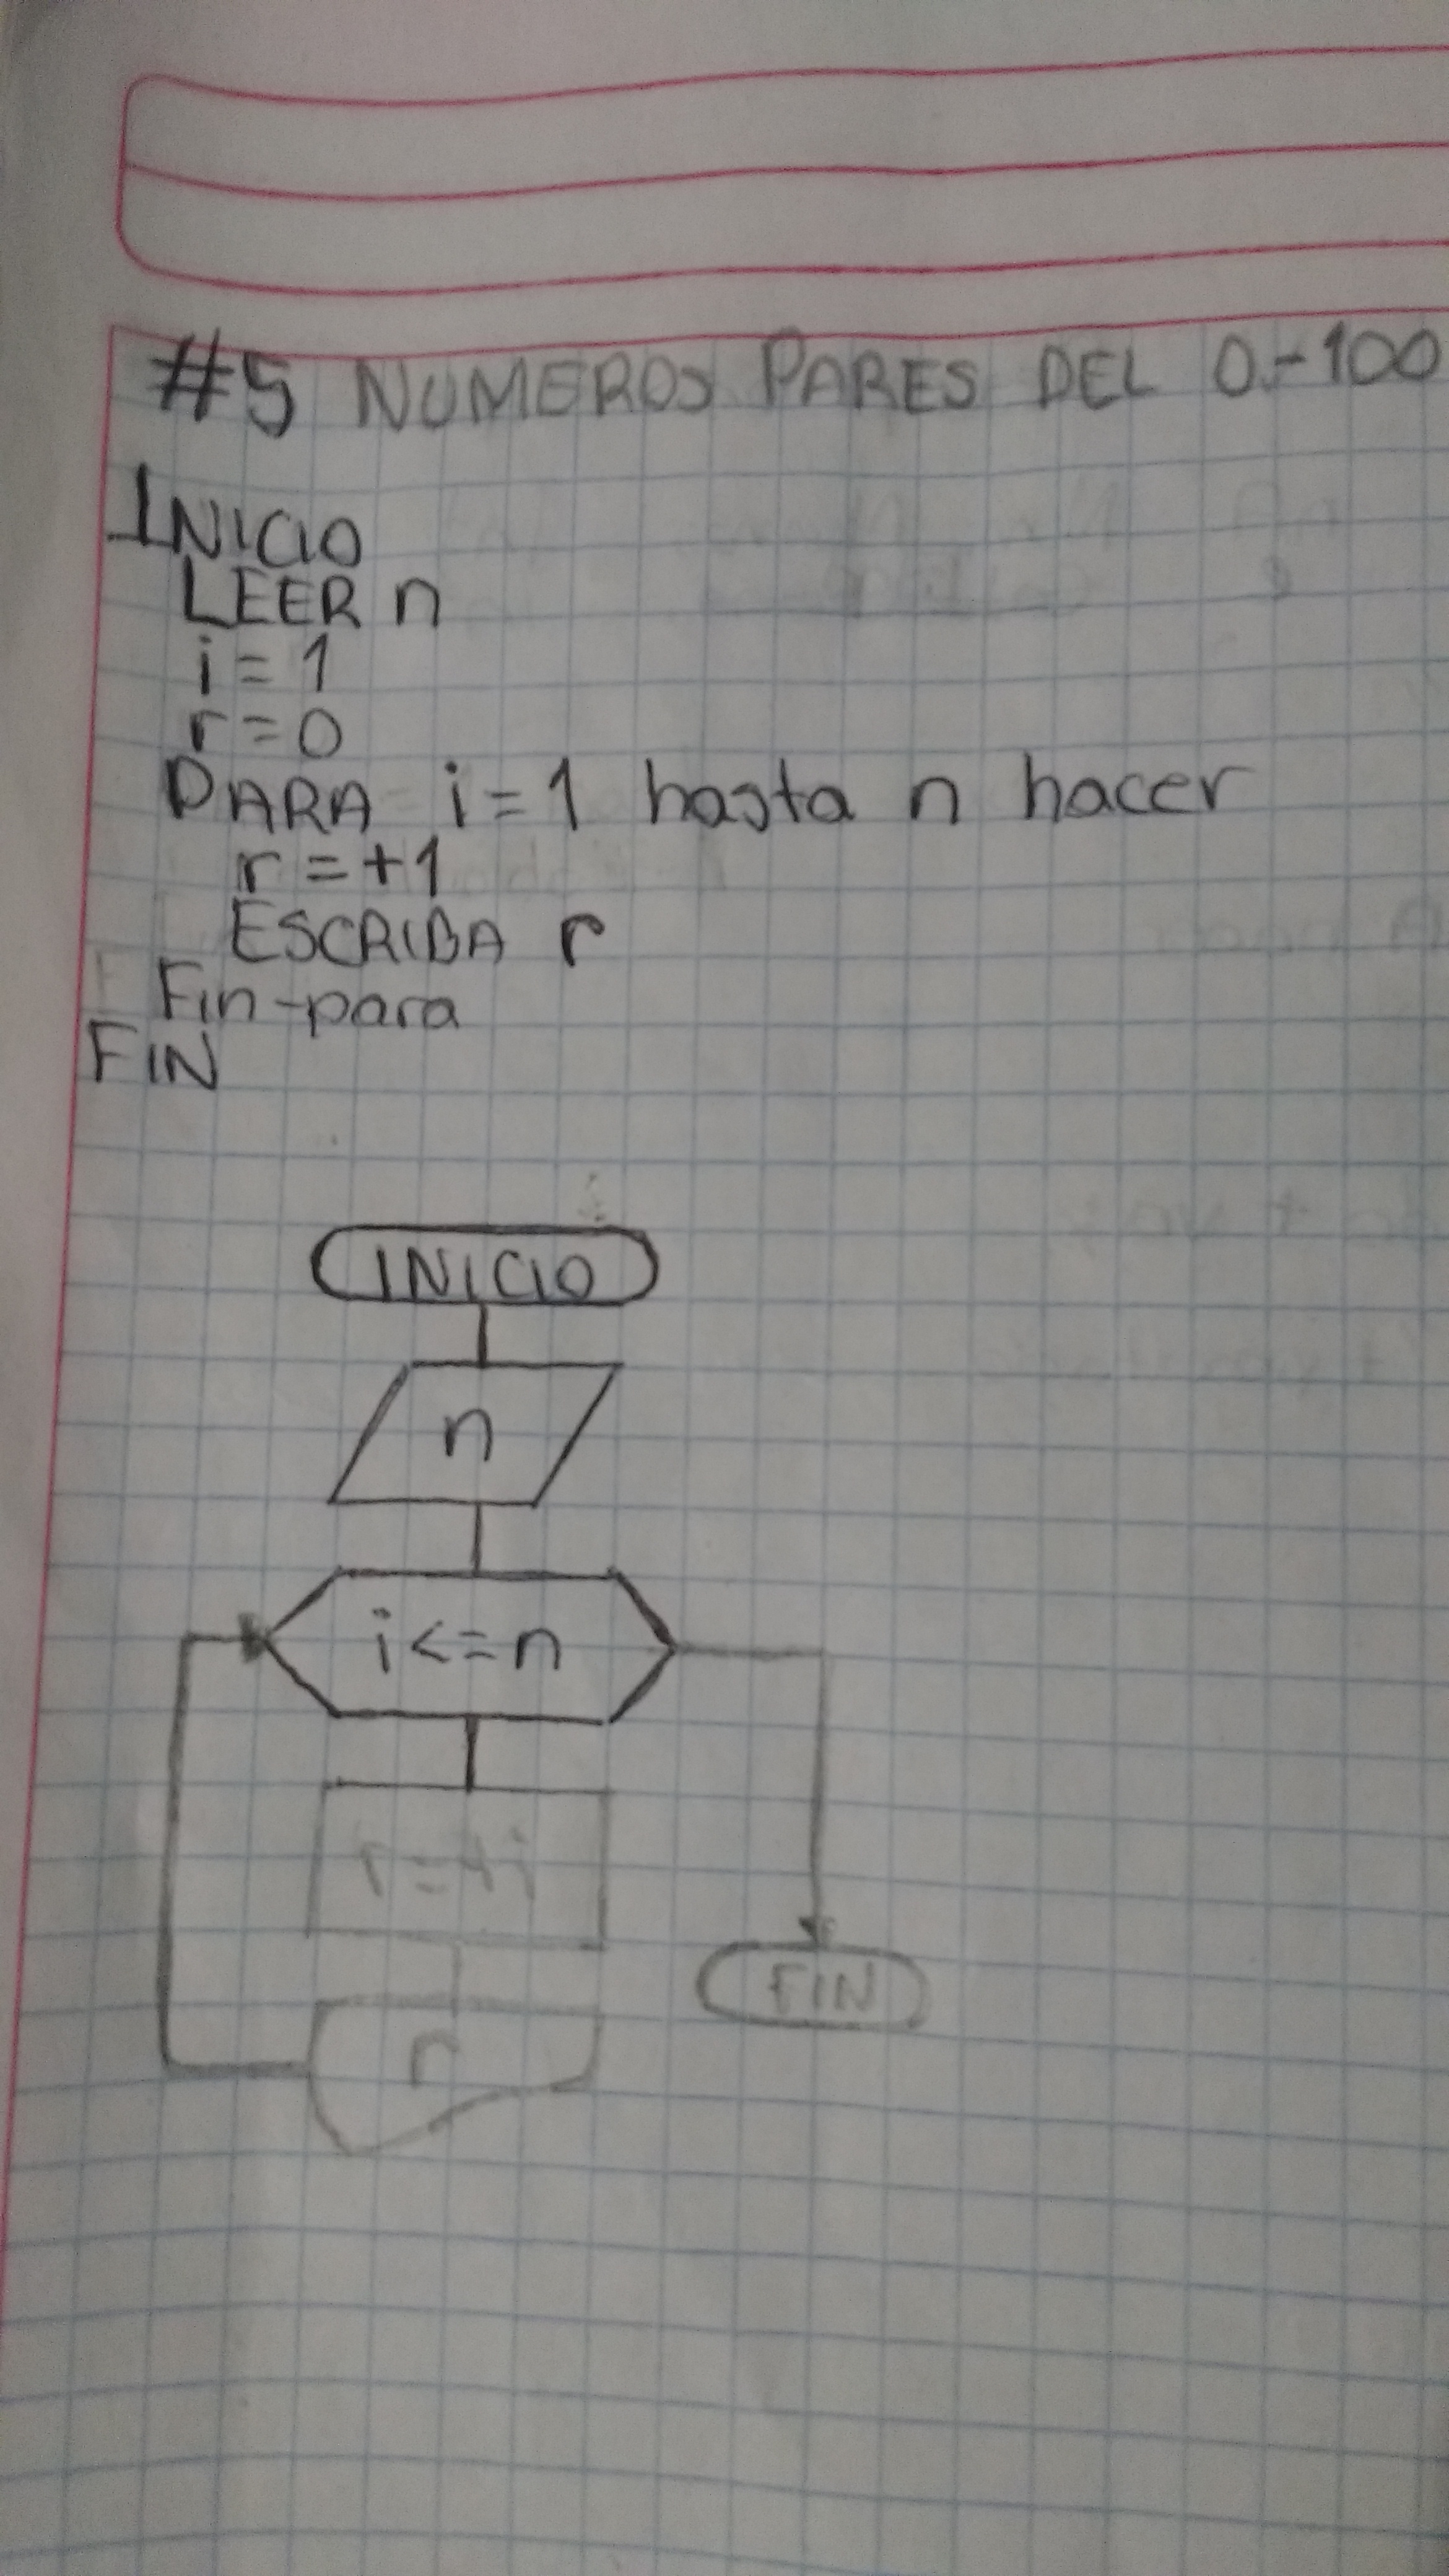 #5 NUMEROS PARES DEL 0.-100
INICIO
LEER n
i = 1
r = 0
PARA i = 1 hasta n hacer
r = +1
ESCRIBA r
Fin-para
FIN
INICIO
n
i <= n
r = +i
r
FIN